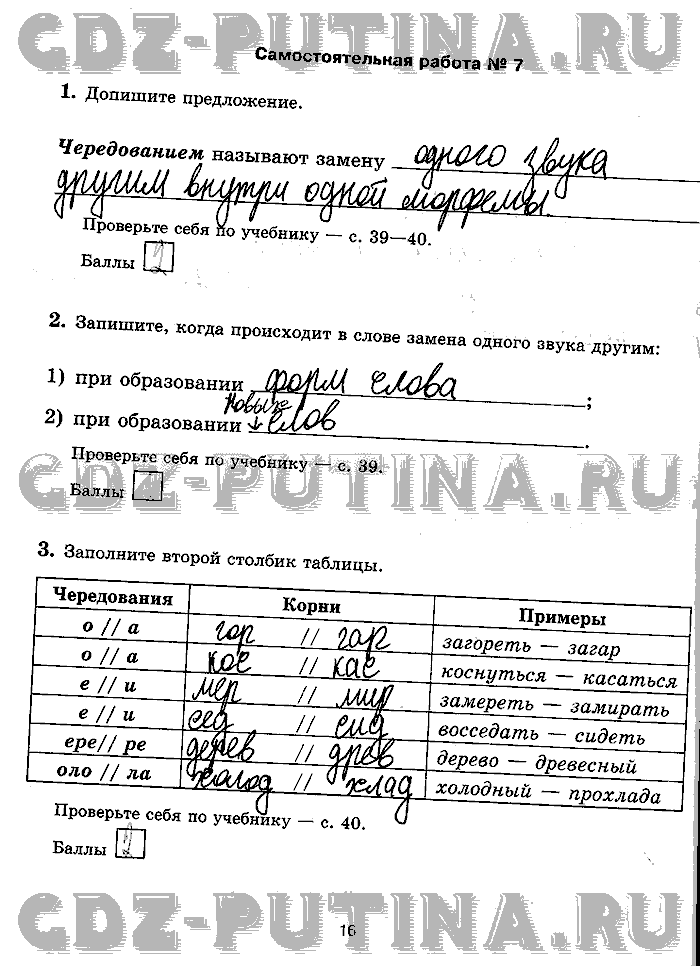 GDZ-PUTINA.RU
Самостоятельная работа № 7
1. Допишите предложение.
Чередованием называют замену одного звука
другим внутри одной морфемы.
Проверьте себя по учебнику — с. 39—40.
Баллы
2. Запишите, когда происходит в слове замена одного звука другим:
1) при образовании форм слова;
новых
2) при образовании слов.
Проверьте себя по учебнику — с. 39.
GDZ-PUTINA.RU
Баллы
3. Заполните второй столбик таблицы.
Чередования Корни Примеры
о // а гор // гар загореть — загар
о // а кос // кас коснуться — касаться
е // и мер // мир замереть — замирать
е // и сед // сид восседать — сидеть
ере// ре дерев // древ дерево — древесный
оло // ла холод // хлад холодный — прохлада
Проверьте себя по учебнику — с. 40.
Баллы
GDZ-PUTINA.RU
16